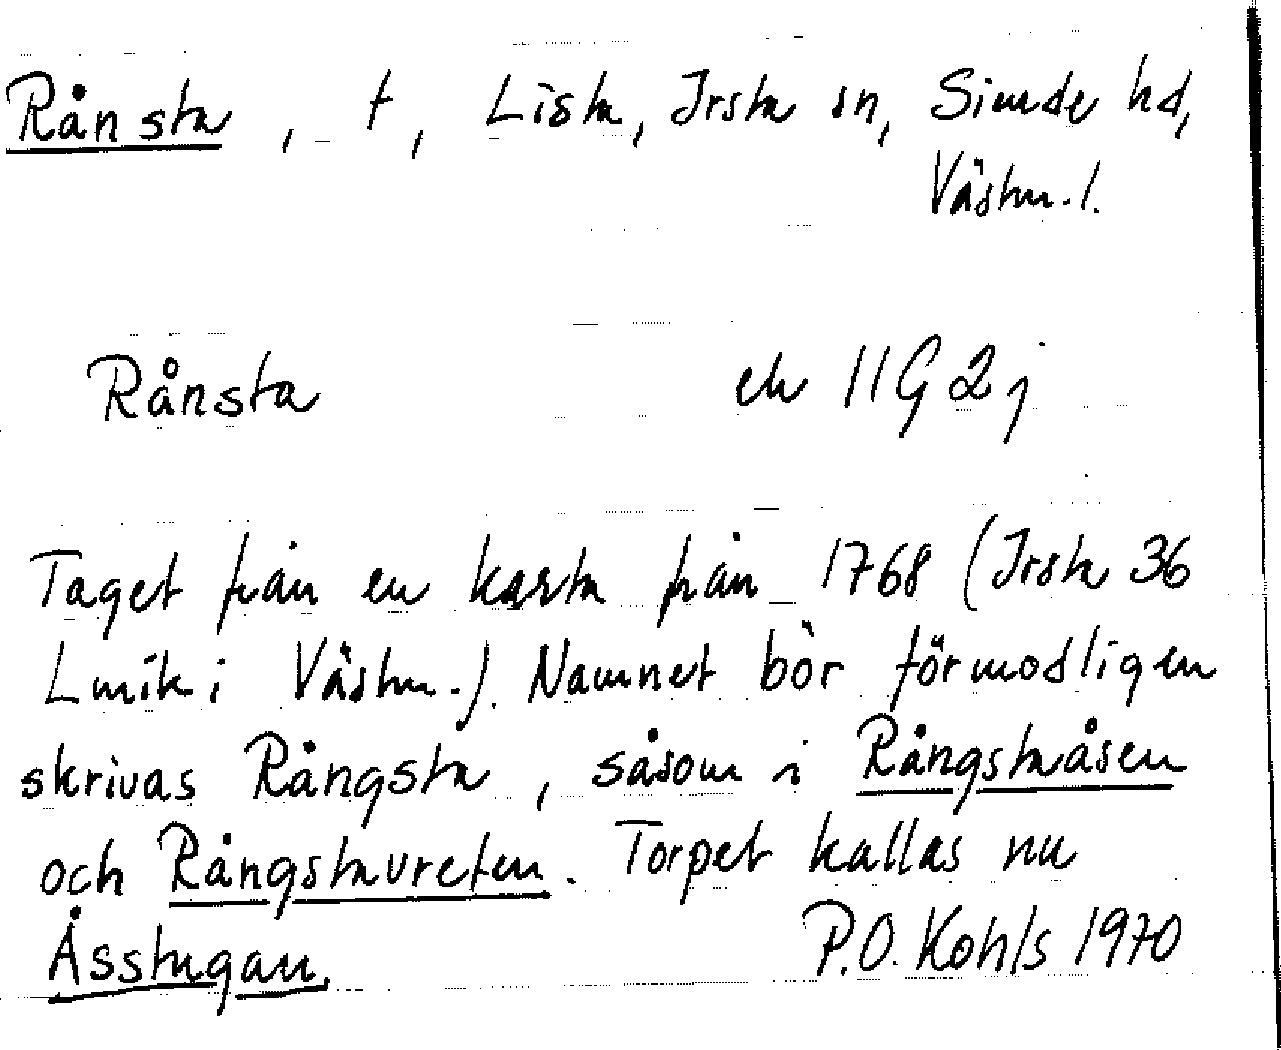 Rånsta, t, Lista, Irsta sn, Siende hd,
Västm. l.
Rånsta ek 11G 2j
Taget från en karta från 1768 (Irsta 36
Lmik i Västm.). Namnet bör förmodligen
skrivas Rångsta, såsom i Rångstaåsen
och Rångstavreten. Torpet kallas nu
Åsstugan. P.O. Kohls 1970